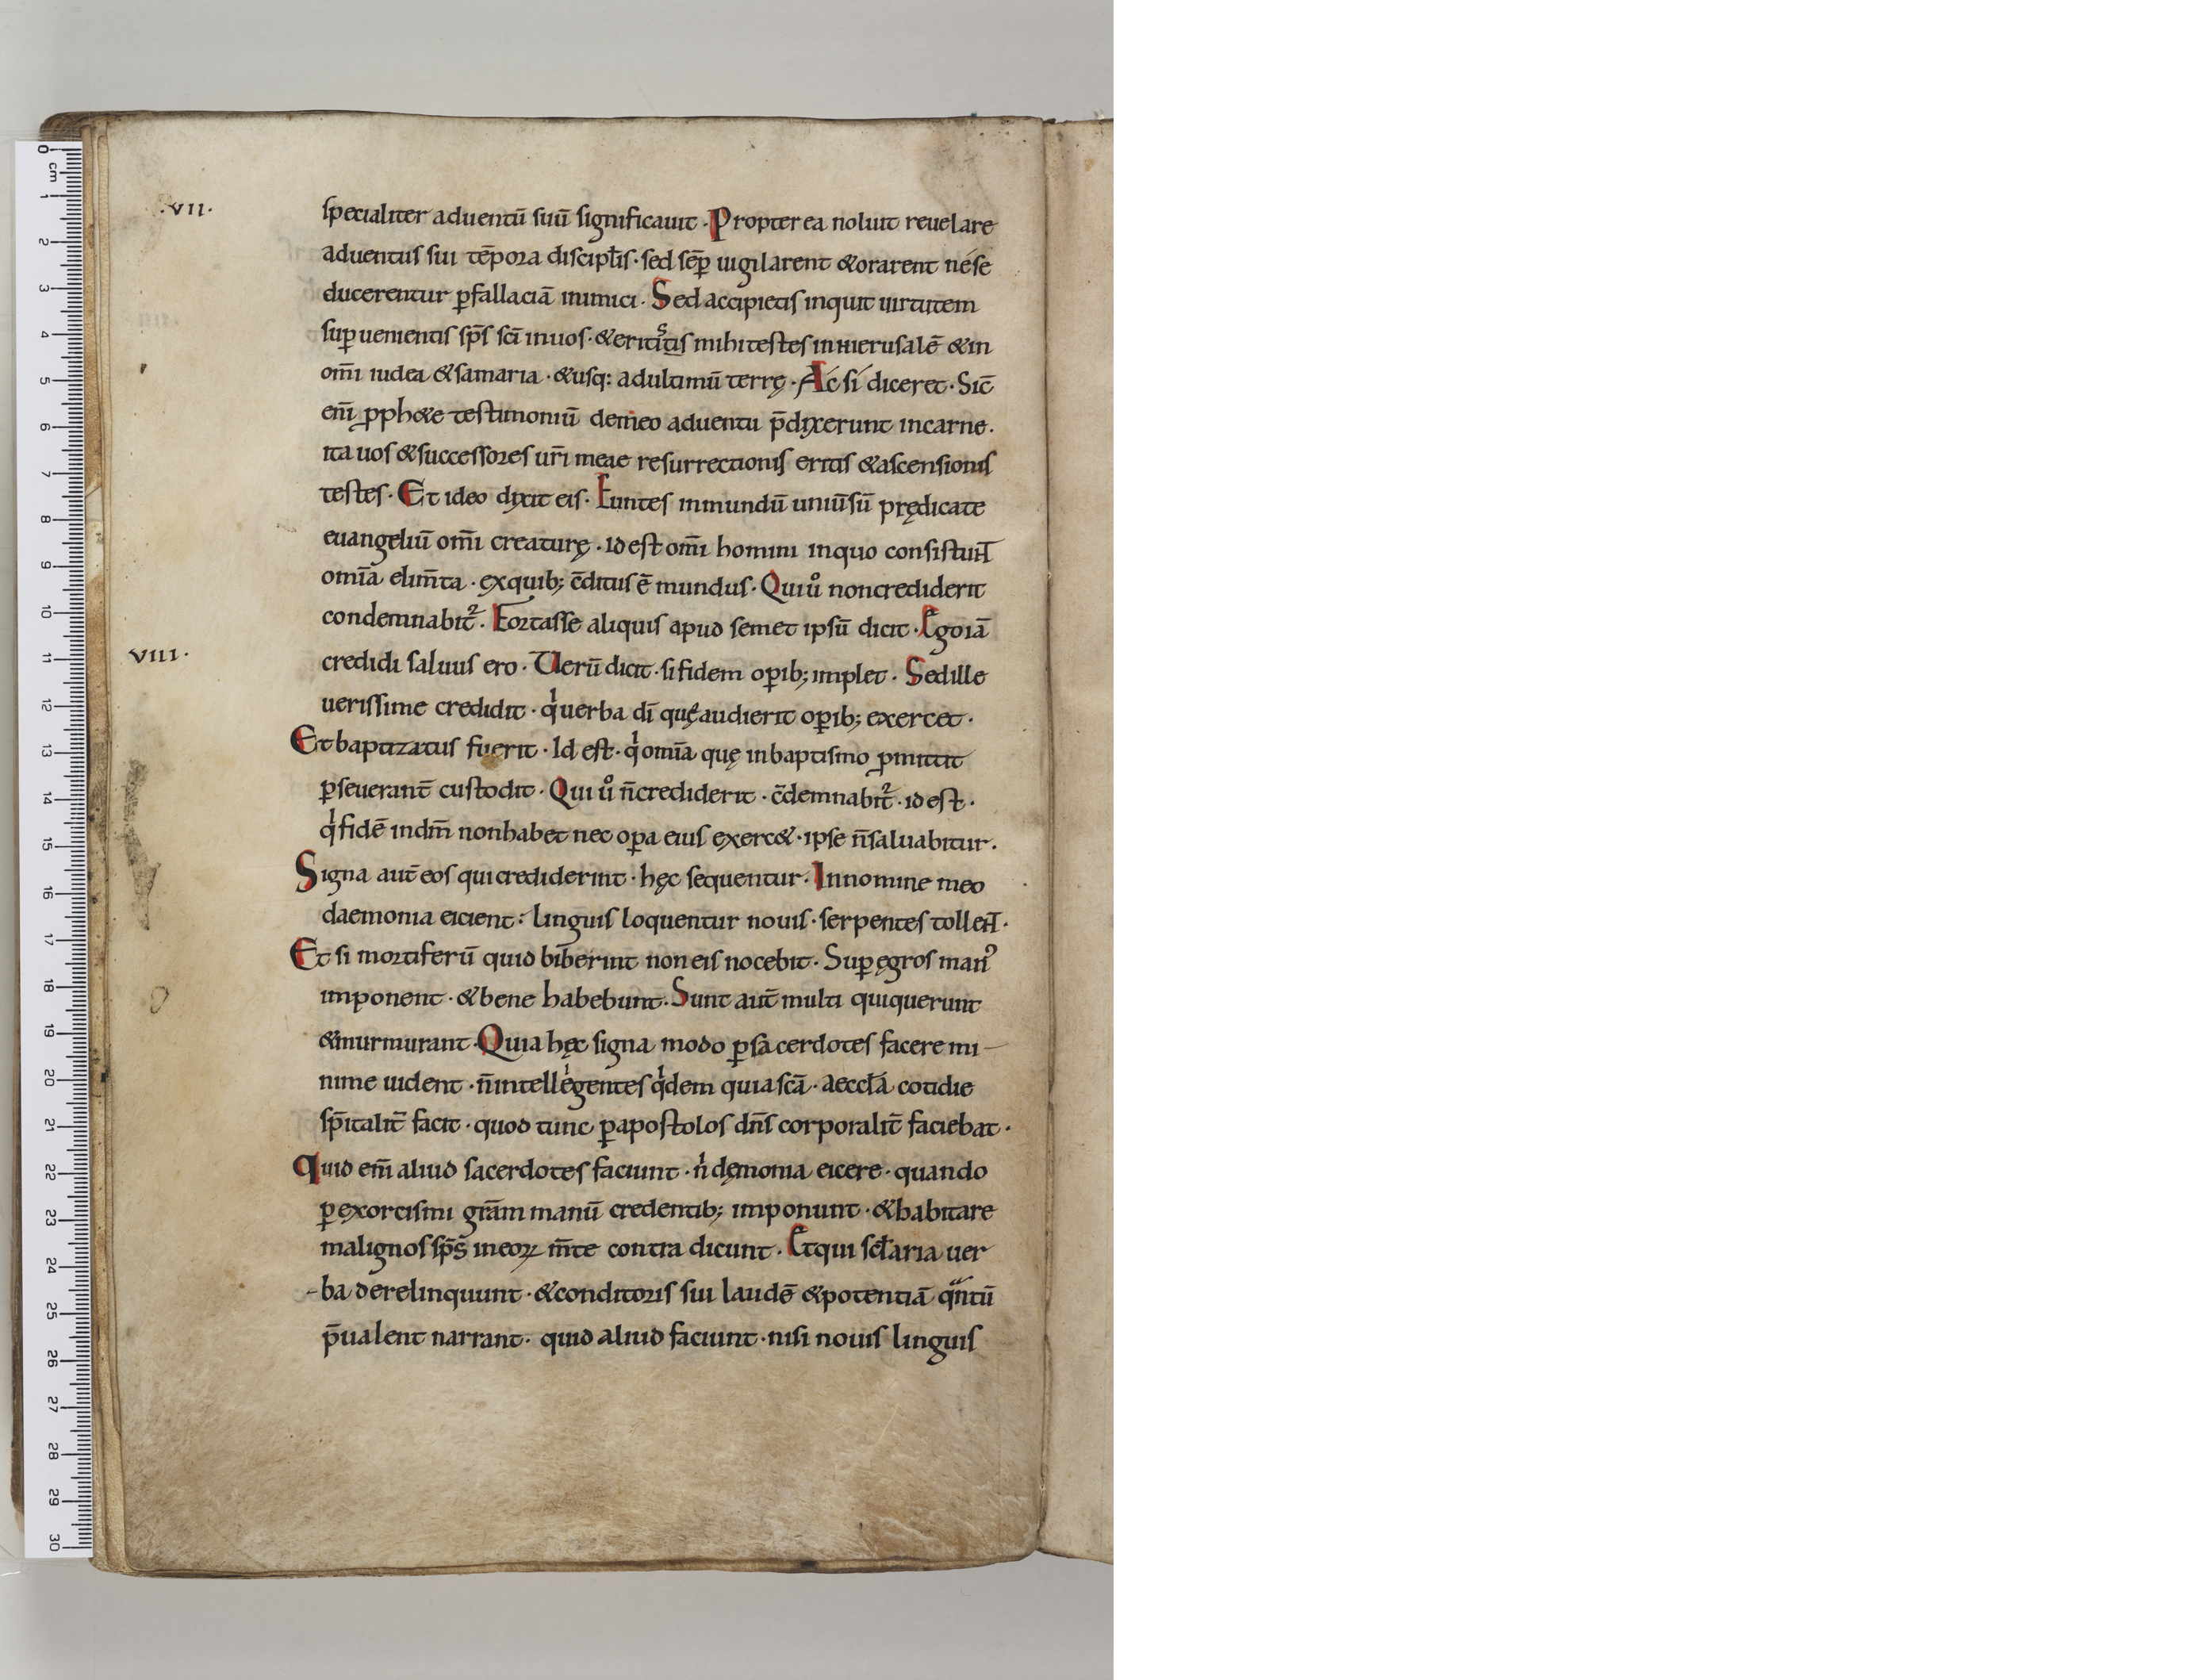 .VII.
specialiter aduentū suū significauit · Propter ea noluit reuelare
aduentus sui tēpora discipłis · sed sēp̄ uigilarent & orarent ne se
ducerentur p̄fallaciā inimici · Sed accipietis inquit uirtutem
sup̄uenientis sp̄s sc̄i in uos · & eritis mihi testes in hierusalē & in
om̄i iudea & samaria · & usq: ad ultimū terrę · Ac si diceret · Sic̄
eni̅ p̱ph&e testimoniū de meo aduentu p̄dixerunt in carne ·
ita uos & successores ur̄i meae resurrectionis eritis & ascensionis
testes · Et ideo dixit eis · Euntes in mundū uniū̄sū prędicate
euangeliū om̄i creaturę · id est om̄i homini in quo consistunt
omīa elim̄ta · ex quib; c̄ditus ē mundus · Qui ů non crediderit
condemnabit̄² · Fortasse aliquis apud semet ipsū dicit · Ego iā
VIII.
credidi saluus ero · Uerū dicit · si fidem op̱ib; implet · Sed ille
uerissime credidit · qⁱ uerba dī quę audierit op̱ib; exercet ·
Et baptizatus fuerit · Id est · qⁱ omīa quę in baptismo p̱mittit
p̱seuerant̄ custodit · Qui ů n̄ crediderit · c̄demnabit̄² · id est ·
qⁱ fidē in dm̄ non habet nec op̱a eius exerc& · ipse n̄ saluabitur ·
Signa aut̄ eos qui crediderint · hęc sequentur · In nomine meo
daemonia eicient : linguis loquentur nouis · serpentes tollent ·
Et si mortiferū quid biberint non eis nocebit · Sup̱ ęgros man⁹
imponent · & bene habebunt · Sunt aut̄ multi qui querunt
& murmurant · Quia hęc signa modo p̱ sacerdotes facere mi-
nime uident · n̄ intellegentes qⁱdem quia sc̄a · aeccła cotidie
sp̄italit̄ facit · quod tunc p̱ apostolos dn̄s corporalit̄ faciebat ·
Quid eni̅ aliud sacerdotes faciunt · nⁱ dęmonia eicere · quando
p̱ exorcismi gr̄am manū credentib; imponunt · & habitare
malignos sp̄s in eoꝝ m̄te contra dicunt · Et qui scłaria uer
-ba derelinquunt · & conditoris sui laudē & potentiā qᵃntū
p̄ualent narrant · quid aliud faciunt · nisi nouis linguis